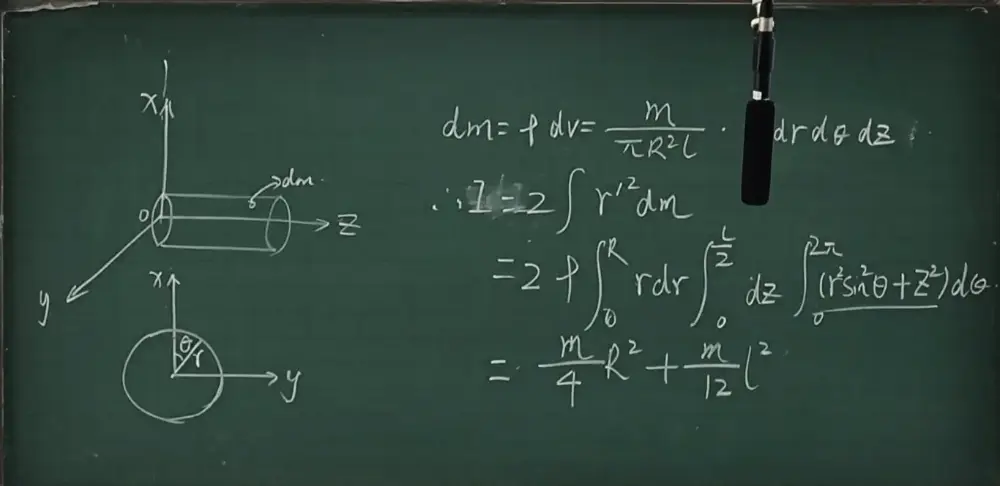 x
dm.
o
z
y
x
θ
r
y
dm = ρ dv = m/(πR²l) · dr dθ dz
∴ I = 2∫ r'² dm
= 2 ρ ∫₀ᴿ r dr ∫₀^(l/2) dz ∫₀^(2π) (r² sin²θ + z²) dθ
= m/4 R² + m/12 l²